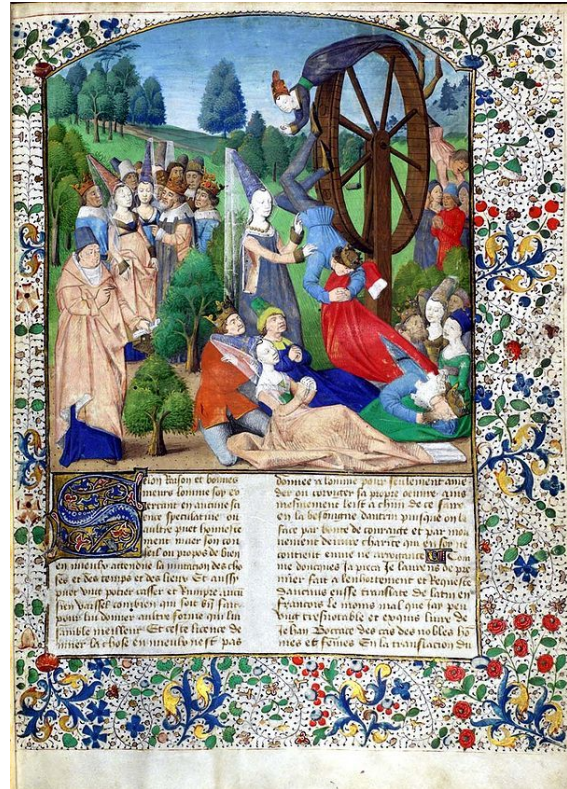 on raison et bonnes
meurs lomme soy ex
cerant en aucune sa
ence speculative ou
aultre puet honneste
ment muer son con
seil ou propos de bien
en mieulx attendue la mutation des cho
ses et des temps et des lieux Et aussy
puet ung potier casser et rumpre aucu
sien vaissel combien quil soit bien fait
pour lui donner aultre forme qui lui
samble meilleur Et ceste licence de
muer la chose en mieulx nest pas
donnee a lomme pour seulement amen
der ou corriger sa propre oeuvre ains
meismement leist a chun de ce faire
en la besoingne daultrui puisque on la
face par bonte de courage et par mou
vement de vraie charite qui en soy ne
contient envie ne arrogance
me doncques ja pieca je laurens de pre
mier fait a lenhortement et Requeste
daucuns eusse translate de latin en
francois le moins mal que jay peu
ung tresnotable et exquis livre de
Jehan Bocace des cas des nobles ho
mes et femmes En la translacion du